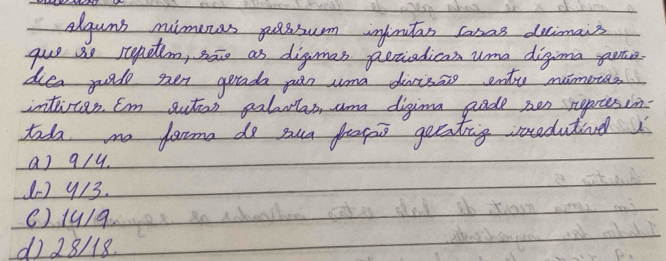 alguns números possuem infinitas casas decimais
que se repetem, são as dízimas periodicas uma dízima perio-
dica pode ser gerada por uma divisão entre números
inteiros. Em outras palavras, uma dízima pode ser represen-
tada na forma de sua fração geratriz irredutível é
a) 9/4.
b) 4/3.
c) 14/9.
d) 28/18.